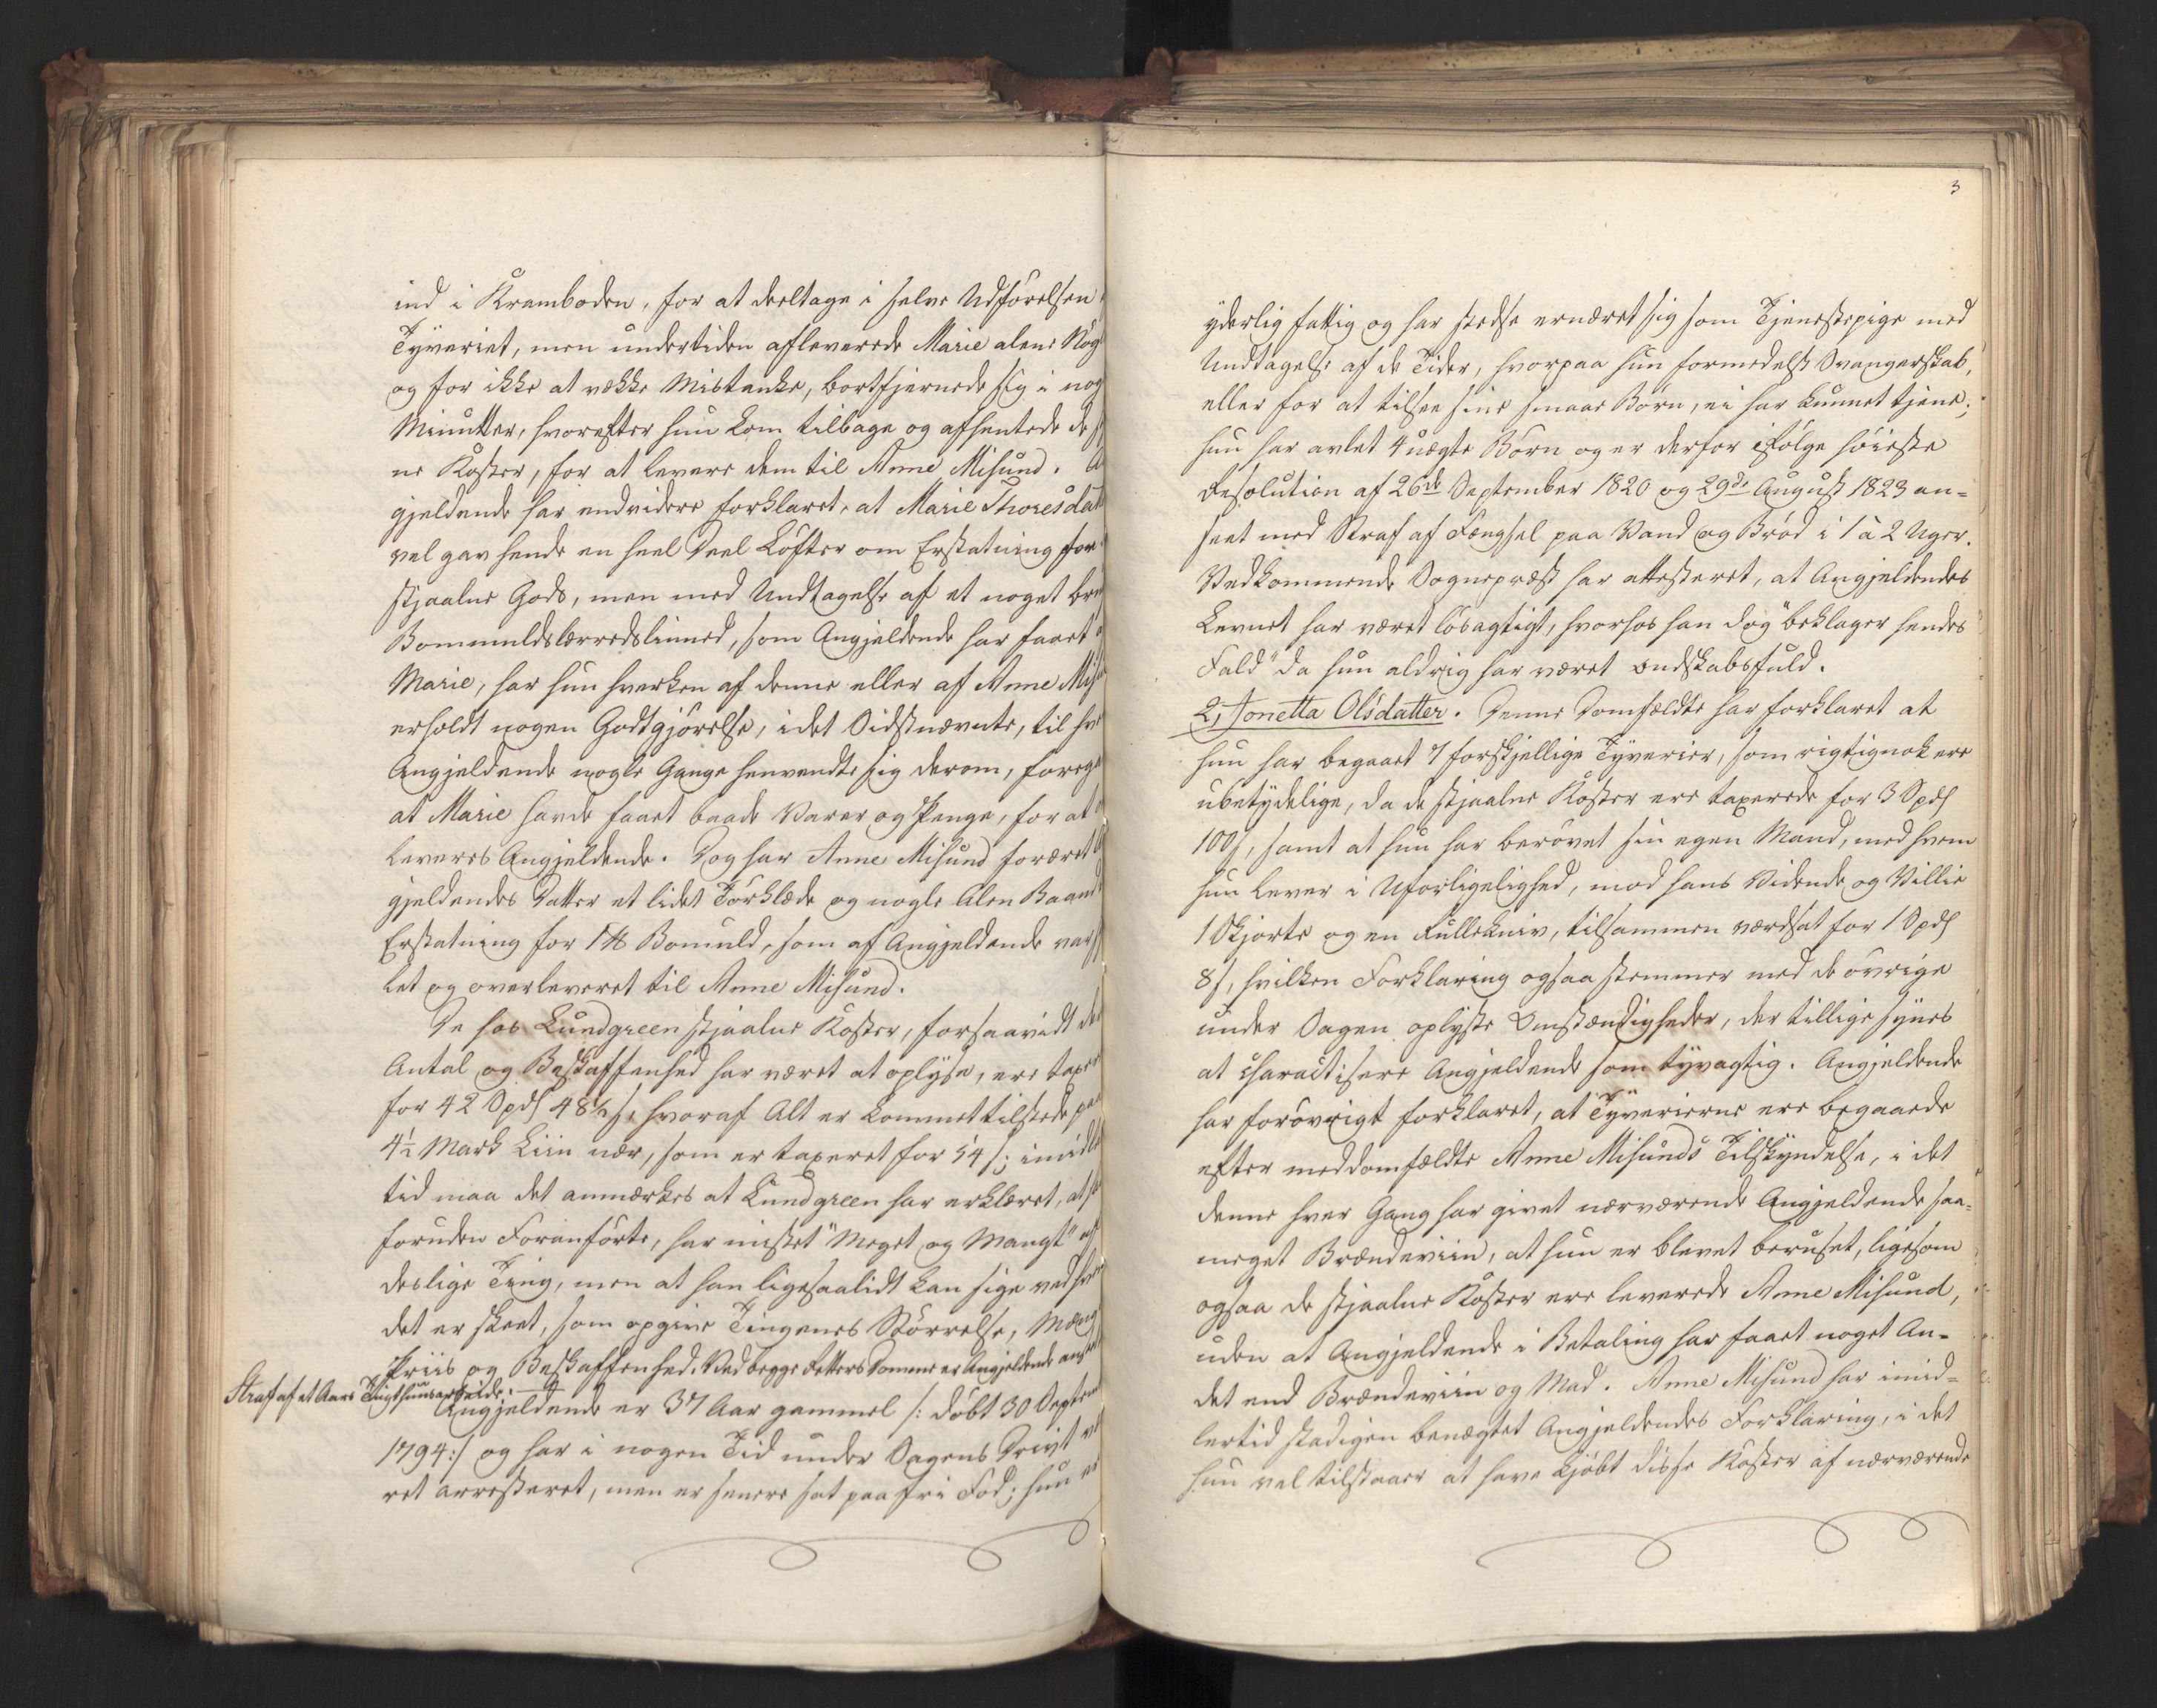 ind i Kramboden, for at deeltage i selve Udførelsen
Tyveriet, men undertiden afleverede Marie alene Nøg
og for ikke at vække Mistanke, bortfjernede sig i nog
Minutter, hvorefter hun kom tilbage og afhentede de
ne Koster, for at levere dem til Anne Misund. A
gjeldende har endvidere forklaret, at Marie Thoresdat
vel gav hende en heel Deel Løfter om Erstatning for
stjaalne Gods, men med Undtagelse af et noget bru
Bomuldslærredslinned, som Angjeldende har faaet
Marie, har hun hverken af denne eller af Anne Misu
erholdt nogen Godtgjørelse, idet Sidstnævnte, til hv
Angjeldende nogle Gange henvendte sig derom, foreg
at Marie havde faaet baade Varer og Penge, for at
leveres Angjeldende. Dog har Anne Misund foræret
gjeldendes Datter et lidet Tørklæde og nogle Alen Baand
Erstatning for 1 ℔ Bomuld, som af Angjeldende var
let og overleveret til Anne Misund.
De hos Lundgreen stjaalne Koster, forsaavidt de
Antal og Beskaffenhed har været at oplyse, ere taxer
for 42 Spd 48½ s, hvoraf Alt er kommet tilstede paa
4½ Mark Liin nær, som er taxeret for 54 s; imidler
tid maa det anmærkes at Lundgreen har erklæret, at
foruden Foranførte, har mistet "Meget og Mangt" af
deslige Ting, men at han ligesaalidt kan sige ved hv
det er skeet, som opgive Tingenes Størrelse, Mæng
Priis og Beskaffenhed. Ved begge Retters Domme er Angjeldende anseet
Straf af et Aars Tugthuusarbeide.
Angjeldende er 37 Aar gammel /: døbt 30 Septem
1794 :/ og har i nogen Tid under Sagens Drivt
ret arresteret, men er senere sat paa fri Fod; hun er
3
yderlig fattig og har stedse ernæret sig som Tjenestepige med
Undtagelse af de Tider, hvorpaa hun formedelst Svangerskab,
eller for at tilsee sine smaae Børn, ei har kunnet tjene;
hun har avlet 4 uægte Børn og er derfor ifølge høieste
Resolution af 26de September 1820 og 29de August 1823 an-
seet med Straf af Fængsel paa Vand og Brød i 1 à 2 Uger.
Vedkommende Sognepræst har attesteret, at Angjeldendes
Levnet har været løsagtigt, hvorhos han dog "beklager hendes
Fald" da hun aldrig har været ondskabsfuld.
2, Jonetta Olsdatter. Denne Domfældte har forklaret at
hun har begaaet 7 forskjellige Tyverier, som rigtignok ere
ubetydelige, da de stjaalne Koster ere taxerede for 3 Spd
100 s, samt at hun har berøvet sin egen Mand, med hvem
hun lever i Uforligelighed, mod hans Vidende og Villie
1 Skjorte og en Rullekniv, tilsammen værdsat for 1 Spd
8 s, hvilken Forklaring ogsaa stemmer med de øvrige
under Sagen oplyste Omstændigheder, der tillige synes
at charactisere Angjeldende som tyvagtig. Angjeldende
har forøvrigt forklaret, at Tyverierne ere begaaede
efter meddomfældte Anne Misunds Tilskyndelse, i det
denne hver Gang har givet nærværende Angjeldende saa-
meget Brændeviin, at hun er blevet beruset, ligesom
ogsaa de stjaalne Koster ere leverede Anne Misund,
uden at Angjeldende i Betaling har faaet noget An-
det end Brændeviin og Mad. Anne Misund har imid-
lertid stadigen benægtet Angjeldendes Forklaring, i det
hun vel tilstaaer at have kjøbt disse Koster af nærværende